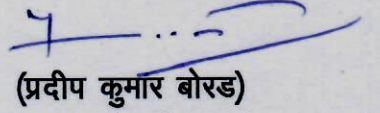 (प्रदीप कुमार बोरड)